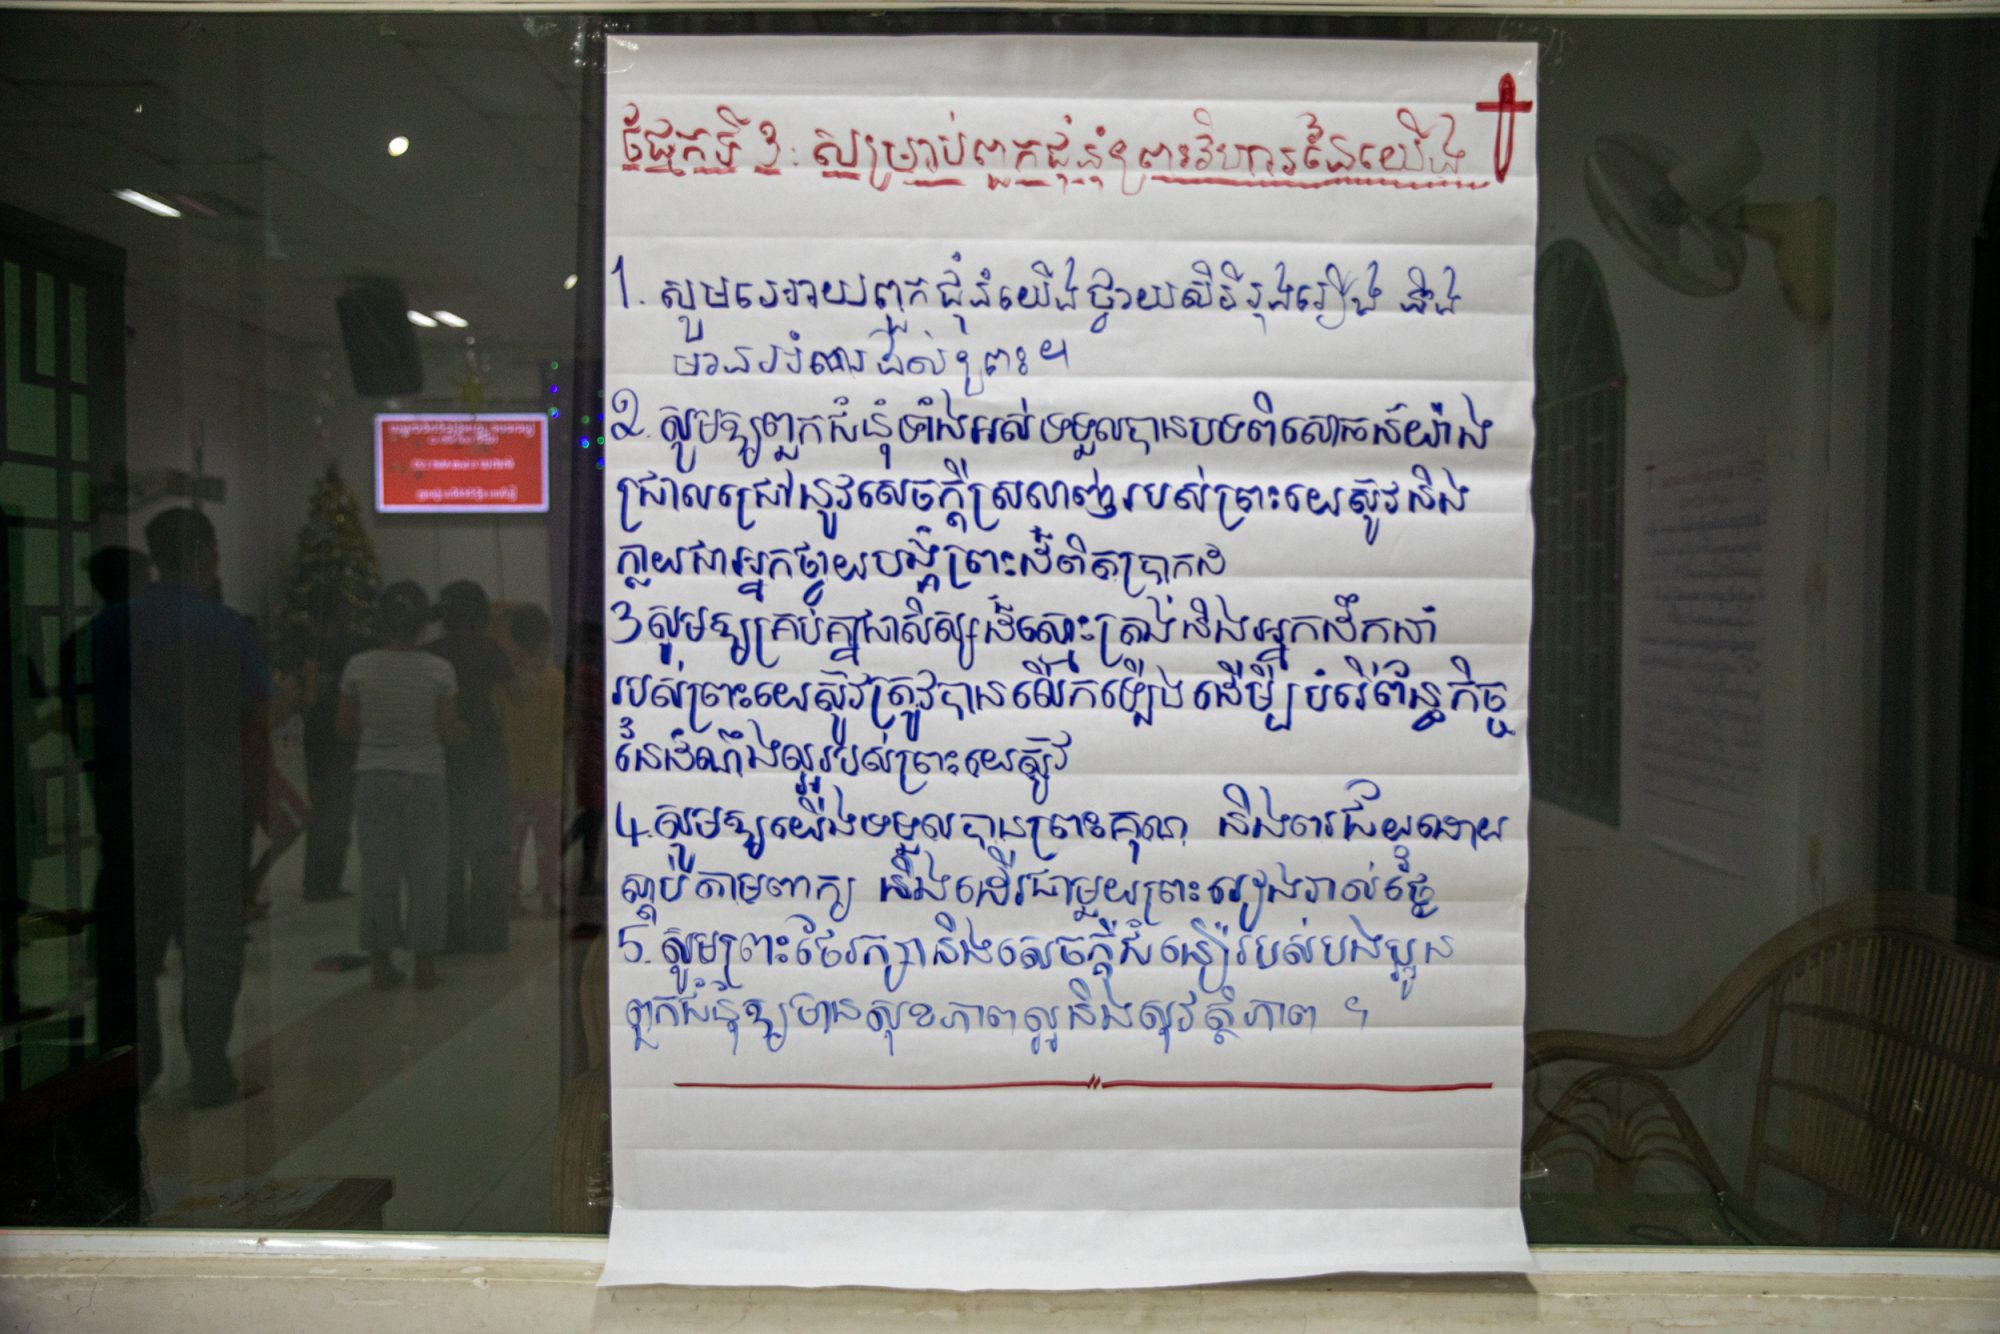 ផ្នែកទី 3: សម្រាប់ពួកជំនុំព្រះវិហារនៃយើង
1. សូមអោយពួកជំនុំយើងថ្វាយសិរីរុងរឿង និង
មានអំណរដល់ព្រះ។
2. សូមឲ្យពួកជំនុំទាំងអស់ទទួលបានបទពិសោធន៍យ៉ាង
ជ្រាលជ្រៅនូវសេចក្តីស្រលាញ់របស់ព្រះយេស៊ូវនិង
ក្លាយជាអ្នកថ្វាយបង្គំព្រះដ៏ពិតប្រាកដ
3 សូមឲ្យគ្រប់គ្នាជាសិស្សដ៏ស្មោះត្រង់និងអ្នកដឹកនាំ
របស់ព្រះយេស៊ូវត្រូវបានលើកឡើងដើម្បីបំរើព័ន្ធកិច្ច
នៃដំណឹងល្អរបស់ព្រះយេស៊ូវ
4. សូមឲ្យយើងទទួលបានព្រះគុណ និងពរជ័យដោយ
ស្តាប់តាមពាក្យ និងដើរជាមួយព្រះរៀងរាល់ថ្ងៃ
5. សូមព្រះថែរក្សានិងសេចក្តីជំនឿរបស់បងប្អូន
ពួកជំនុំឲ្យមានសុខភាពល្អនិងសុវត្ថិភាព ។